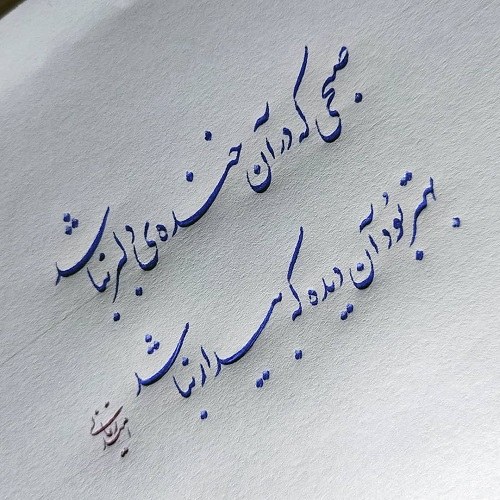 صبحی که در آن خنده‌ی دلبر نباشد
بهتر بُوَد آن دیده که بیدار نباشد